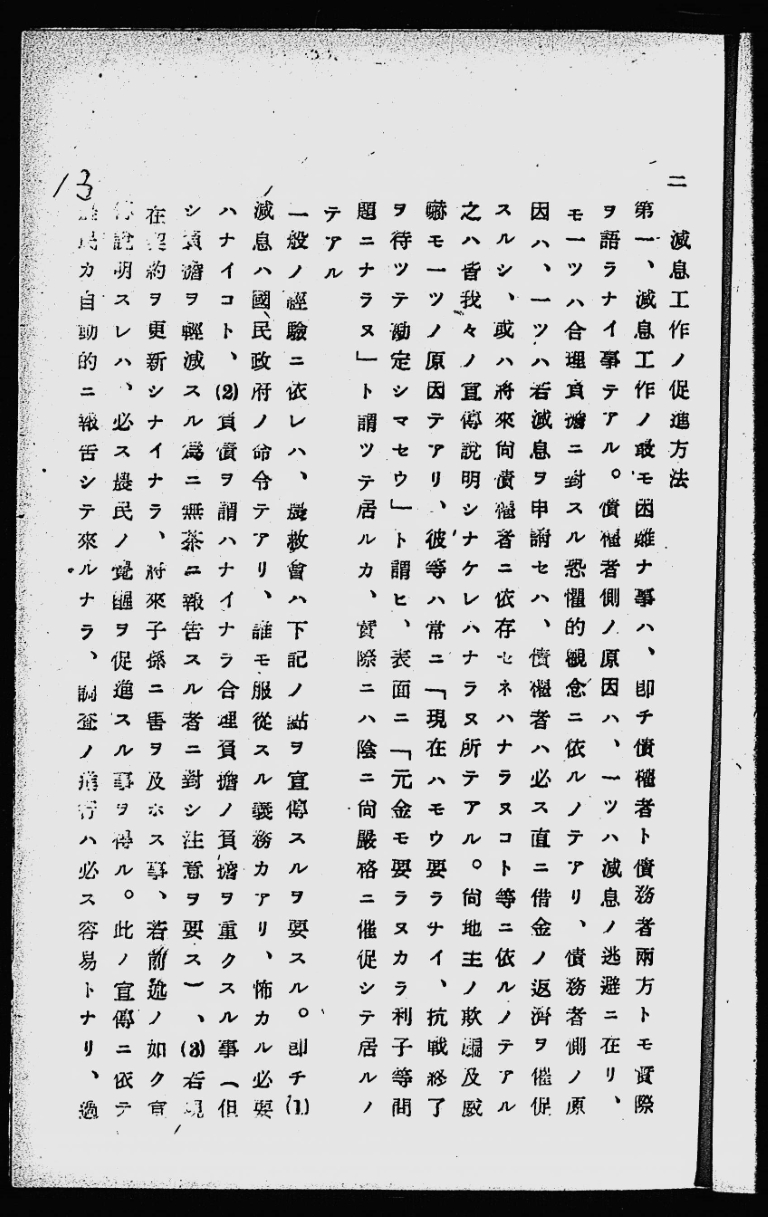 二　減息工作ノ促進方法
第一、減息工作ノ最モ困難ナ事ハ、卽チ債權者ト債務者兩方トモ實際
ヲ語ラナイ事テアル。債權者側ノ原因ハ、一ツハ減息ノ逃避ニ在リ、
モ一ツハ合理負擔ニ對スル恐懼的觀念ニ依ルノテアリ、債務者側ノ原
因ハ、一ツハ若減息ヲ申請セハ、債權者ハ必ス直ニ借金ノ返濟ヲ催促
スルシ、或ハ將來尙債權者ニ依存セネハナラヌコト等ニ依ルノテアル
之ハ皆我々ノ宣傳說明シナケレハナラヌ所テアル。尙地主ノ欺騙及威
嚇モ一ツノ原因テアリ、彼等ハ常ニ「現在ハモウ要ラナイ、抗戰終了
ヲ待ツテ勘定シマセウ」ト謂ヒ、表面ニ「元金モ要ラヌカラ利子等問
題ニナラヌ」ト謂ツテ居ルカ、實際ニハ陰ニ尙嚴格ニ催促シテ居ルノ
テアル
一般ノ經驗ニ依レハ、農救會ハ下記ノ點ヲ宣傳スルヲ要スル。卽チ(1)
減息ハ國民政府ノ命令テアリ、誰モ服從スル義務カアリ、怖カル必要
ハナイコト、(2)負債ヲ謂ハナイナラ合理負擔ノ負擔ヲ重クスル事（但
シ負擔ヲ輕減スル爲ニ無茶ニ報告スル者ニ對シ注意ヲ要ス）、(3)若現
在契約ヲ更新シナイナラ、將來子孫ニ害ヲ及ホス事、若前述ノ如ク宣
傳說明スレハ、必ス農民ノ覺醒ヲ促進スル事ヲ得ル。此ノ宣傳ニ依テ
農民カ自動的ニ報告シテ來ルナラ、調查ノ進行ハ必ス容易トナリ、過
13